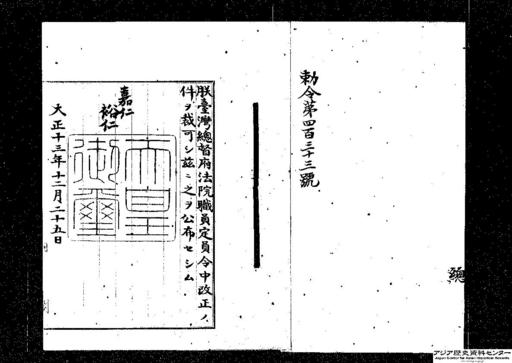 勅令第四百三十三號
朕臺灣總督府法院職員定員令中改正ノ
件ヲ裁可シ茲ニ之ヲ公布セシム
嘉仁
裕仁
天皇御璽
大正十三年十二月二十五日
總
アジア歴史資料センター
Japan Center for Asian Historical Records